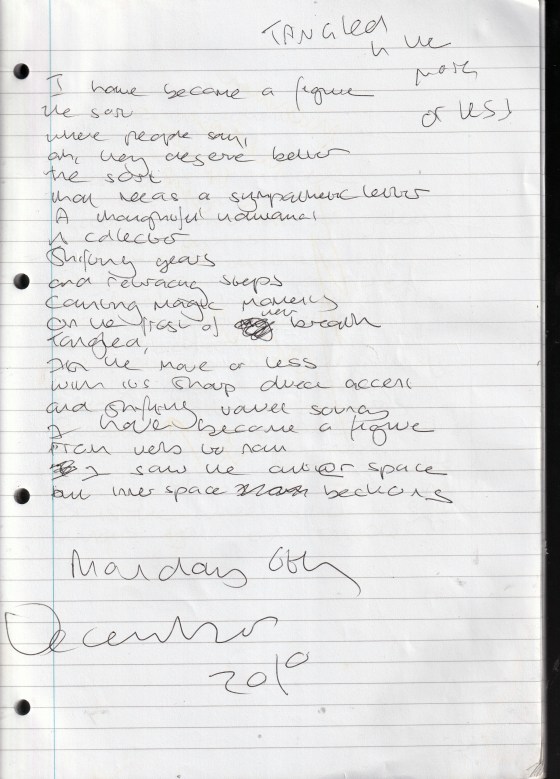 TANGLED
in the
more
or less
I have become a figure
the sort
where people say,
oh, they deserve better
the sort
that needs a sympathetic letter
A thoughtful
A collector
Shifting gears
and retracing steps
Coining magic moments
On the frost of new breath
Tangled,
in the more or less
with its sharp direct accent
and shifting vowel sounds
I have become a figure
From verb to noun
I saw the outer space
but inner space beckons
Monday 6th
December
2010